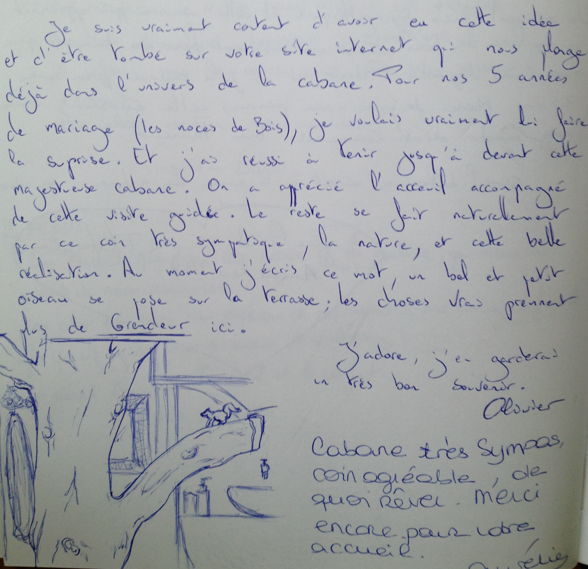 Je suis vraiment content d'avoir eu cette idée
et d'être tombé sur votre site internet qui nous plonge
déjà dans l'univers de la cabane. Pour nos 5 années
de mariage (les noces de Bois), je voulais vraiment lui faire
la surprise. Et j'ai réussi à tenir jusqu'à devant cette
majesteuse cabane. On a apprécié l'acceuil accompagné
de cette visite guidée. Le reste se fait naturellement
par ce coin très sympatique, la nature, et cette belle
réalisation. Au moment j'écris ce mot, un bel et petit
oiseau se pose sur la terrasse; les choses vrais prennent
plus de Grandeur ici.
J'adore, j'en garderai
un très bon souvenir.
Olivier
Cabane très Sympas,
coin agréable, de
quoi Rêver. Merci
encore pour votre
accueil.
Aurélie